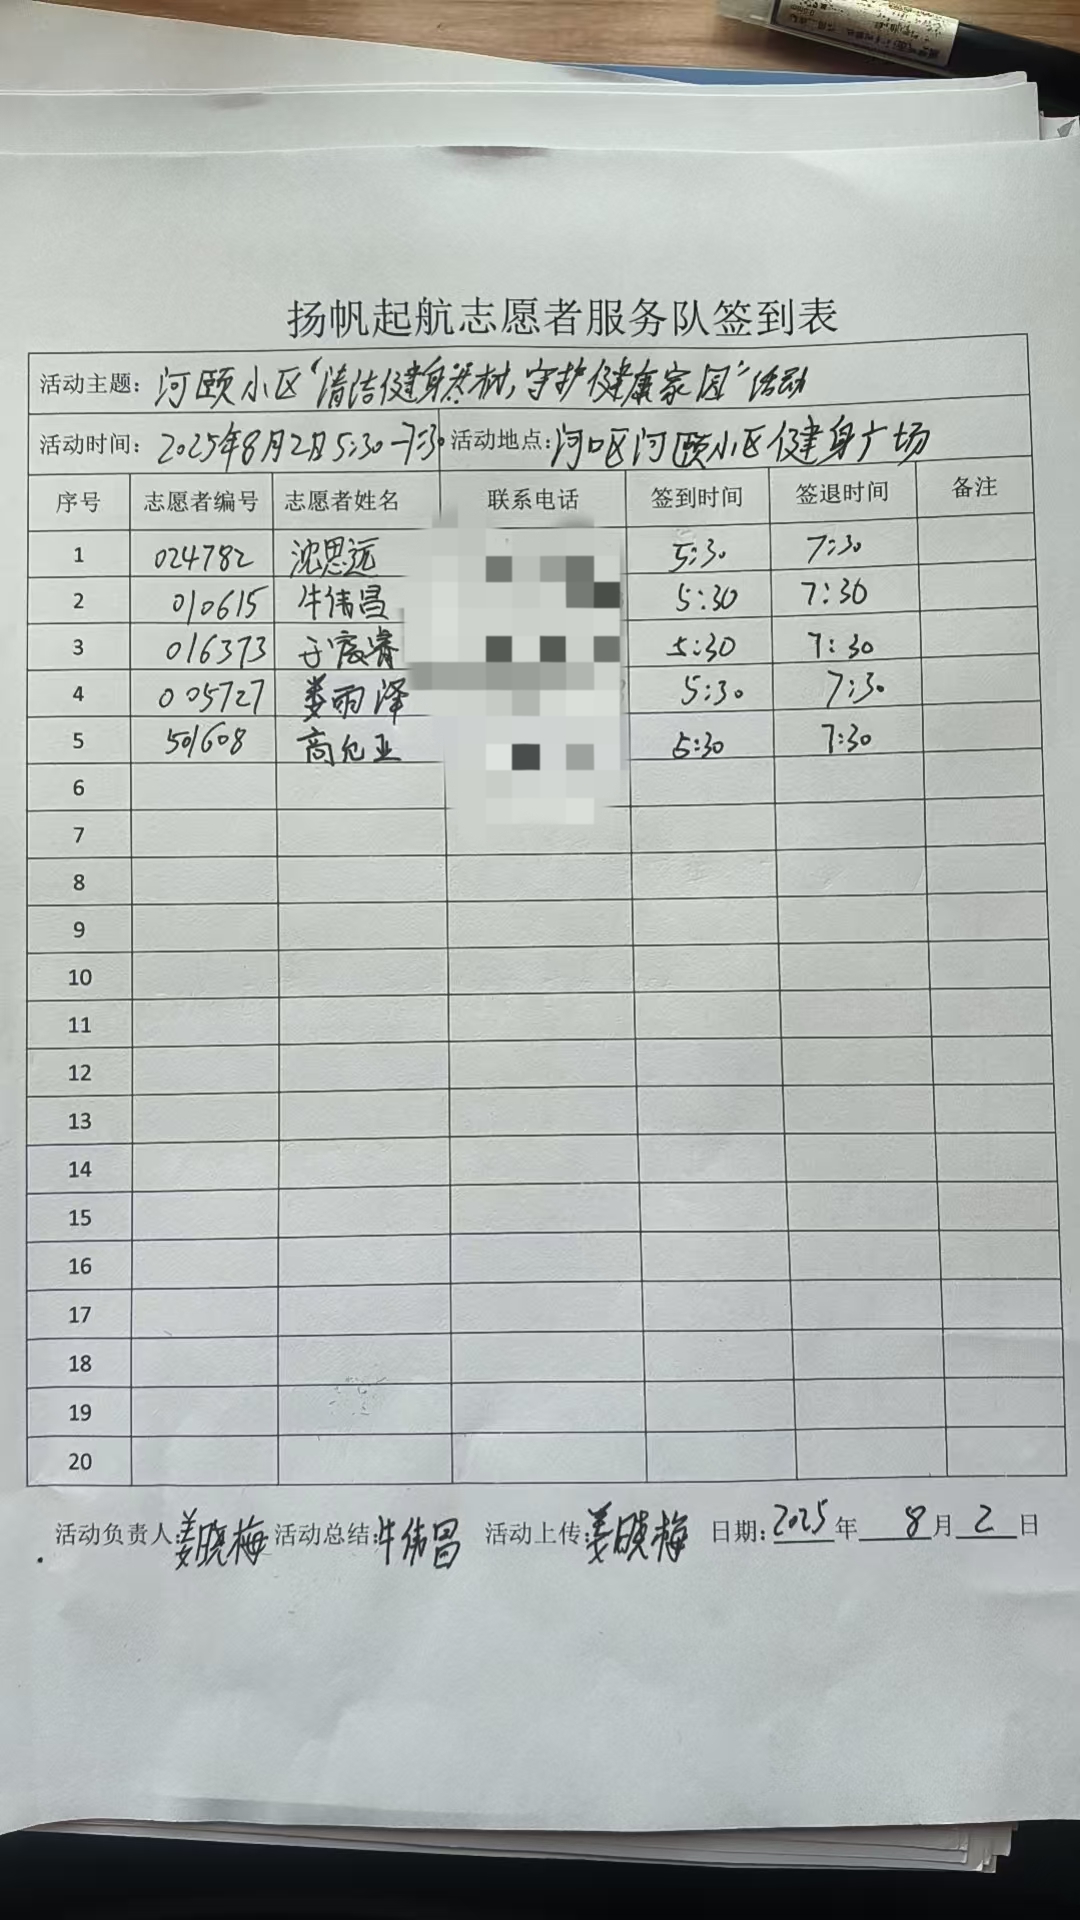 扬帆起航志愿者服务队签到表
活动主题: 河颐小区“清洁健身器材,守护健康家园”活动
活动时间: 2025年8月2日5:30-7:30 活动地点: 河口区河颐小区健身广场
序号 志愿者编号 志愿者姓名 联系电话 签到时间 签退时间 备注
1 024782 沈思远 5:30 7:30
2 010615 牛伟昌 5:30 7:30
3 016373 于宸睿 5:30 7:30
4 005727 娄雨泽 5:30 7:30
5 501608 商允亚 5:30 7:30
6
7
8
9
10
11
12
13
14
15
16
17
18
19
20
活动负责人: 姜晓梅 活动总结: 牛伟昌 活动上传: 姜晓梅 日期: 2025年 8月 2日